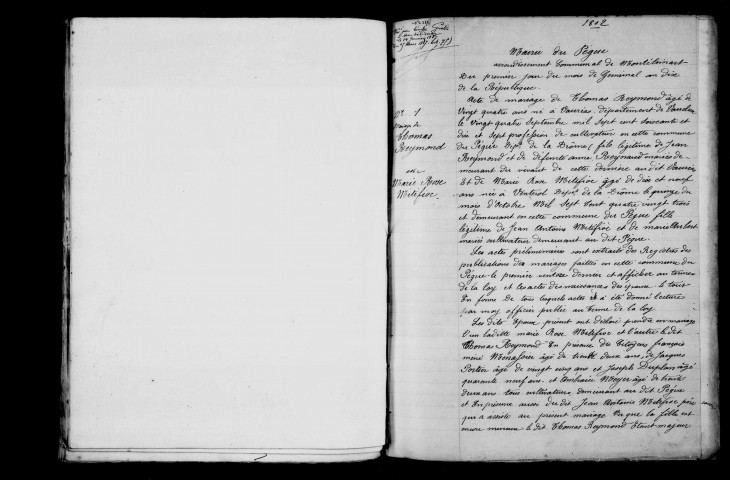 1802
Mairie du Pègue
arrondissement Communal de Montélimart
Du premier jour du mois de Germinal an dix
de la République.
Acte de mariage de Thomas Reymond âgé de
Vingt quatre ans né à Vauréas département de Vaucluse
le Vingt quatre Septembre mil Sept cent soixante et
dix et sept profession de cultivateur en cette commune
du Pègue Dépt de la Drôme, fils légitime de Jean
Reymond et de défunte anne Reynaud mariés de-
meurant du vivant de cette dernière au dit Vauréas
Et de Marie Rose Métifiot âgé de dix et neuf
ans née à Venterol Dépt de la Drôme le quinze du
mois d'Octobre Mil Sept Cent quatre vingt trois
et demeurant en cette commune du Pègue fille
légitime de Jean Antoine Métifiot et de marie
mariés cultivateur demeurant au dit Pègue.
Les actes préliminaires sont extraits des Registres des
publications des mariages faites en cette commune du
Pègue le premier ventose dernier et afficher au termes
de la loy et les actes des naissances des époux le tout
En forme de tous lesquels actes il a été donné lecture
par moy officier public au terme de la loy
Les dits Epoux présent ont déclaré prendre en mariage
L'un ladite marie Rose Métifiot et l'autre le dit
Thomas Reymond En présence des Citoyens françois
âgé de trente deux ans, de Jacques
âgé de vingt ans et Joseph âgé
quarante neuf ans et âgé de trente
deux ans tous cultivateurs demeurant au dit Pègue
et En présence aussi du dit Jean Antoine Métifiot père
qui a assisté au présent mariage Vu que la fille est
encore mineure le dit Thomas Reymond Etant majeur
Nº 1
Mariage de
Thomas
Reymond
et
Marie Rose
Métifiot.